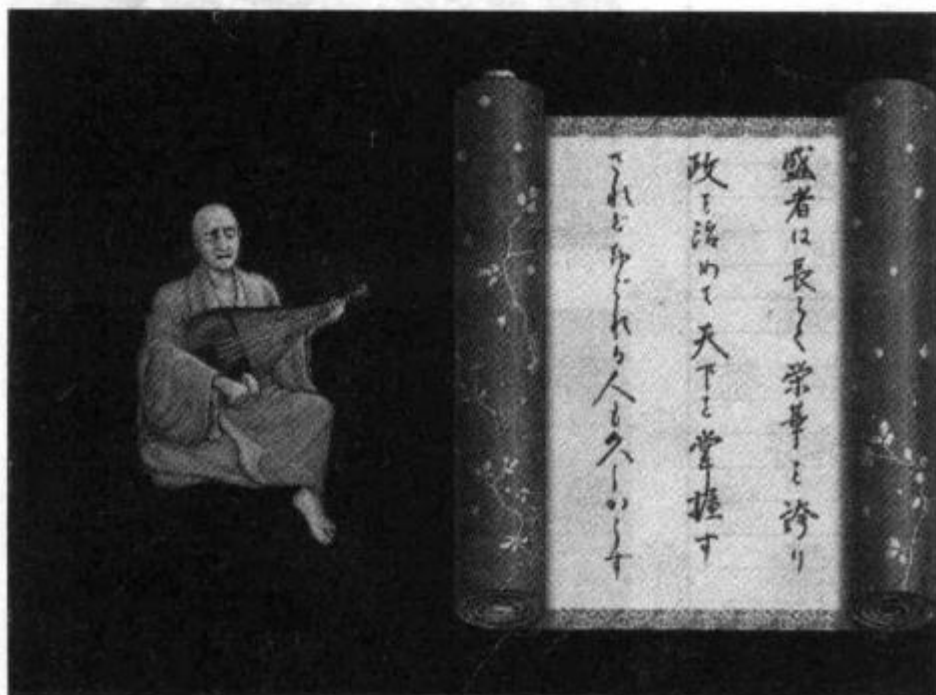 盛者は長らく栄華を誇り
政を治めて天下を掌握す
されどおごれる人も久しからす